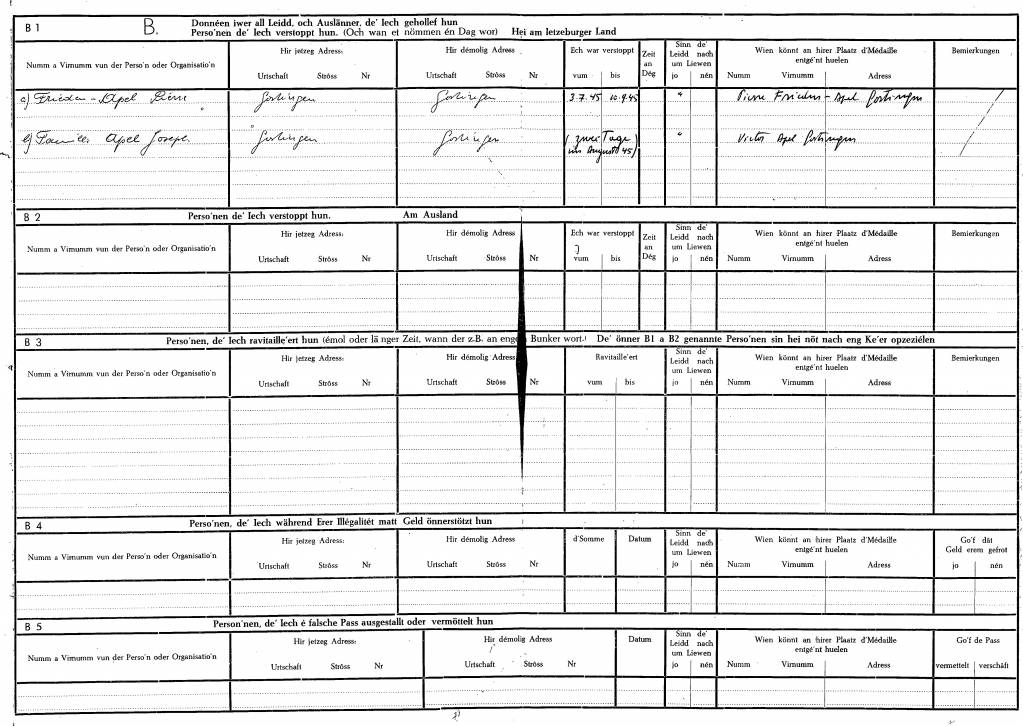 B 1 B. Donnéen iwer all Leidd, och Auslänner, de' Iech gehollef hun
Perso'nen de' Iech verstoppt hun. (Och wan et nömmen én Dag wor) Hei am letzeburger Land
Numm a Virnumm vun der Perso'n oder Organisatio'n
Hir jetzeg Adress:
Urtschaft Ströss Nr
Hir démolig Adress
Urtschaft Ströss Nr
Ech war verstoppt
vum bis
Zeit
an
Dég
Sinn de'
Leidd nach
um Liewen
jo nén
Wien könnt an hirer Plaatz d'Médaille
entgé'nt huelen
Numm Virnumm Adress
Bemierkungen
a) Frieden - Apel Pierre 3.7.45 10.9.45 " Pierre Frieden - Apel
b) Famille Apel Joseph (zwei Tage " Victor Apel
im August 45)
B 2 Perso'nen de' Iech verstoppt hun. Am Ausland
Numm a Virnumm vun der Perso'n oder Organisatio'n
Hir jetzeg Adress:
Urtschaft Ströss Nr
Hir démolig Adress
Urtschaft Ströss Nr
Ech war verstoppt
vum bis
Zeit
an
Dég
Sinn de'
Leidd nach
um Liewen
jo nén
Wien könnt an hirer Plaatz d'Médaille
entgé'nt huelen
Numm Virnumm Adress
Bemierkungen
B 3 Perso'nen, de' Iech ravitaille'ert hun (émol oder lä nger Zeit, wann der z.B. an engem Bunker wort.) De' önner B1 a B2 genannte Perso'nen sin hei nöt nach eng Ke'er opzeziélen
Numm a Virnumm vun der Perso'n oder Organisatio'n
Hir jetzeg Adress:
Urtschaft Ströss Nr
Hir démolig Adress
Urtschaft Ströss Nr
Ravitaille'ert
vum bis
Sinn de'
Leidd nach
um Liewen
jo nén
Wien könnt an hirer Plaatz d'Médaille
entgé'nt huelen
Numm Virnumm Adress
Bemierkungen
B 4 Perso'nen, de' Iech während Erer Illégalitét matt Geld önnerstötzt hun
Numm a Virnumm vun der Perso'n oder Organisatio'n
Hir jetzeg Adress:
Urtschaft Ströss Nr
Hir démolig Adress
Urtschaft Ströss Nr
d'Somme
Datum
Sinn de'
Leidd nach
um Liewen
jo nén
Wien könnt an hirer Plaatz d'Médaille
entgé'nt huelen
Numm Virnumm Adress
Go'f dât
Geld erem gefrot
jo nén
B 5 Person'nen, de' Iech é falsche Pass ausgestallt oder vermöttelt hun
Numm a Virnumm vun der Perso'n oder Organisatio'n
Hir jetzeg Adress:
Urtschaft Ströss Nr
Hir démolig Adress
Urtschaft Ströss Nr
Datum
Sinn de'
Leidd nach
um Liewen
jo nén
Wien könnt an hirer Plaatz d'Médaille
entgé'nt huelen
Numm Virnumm Adress
Go'f de Pass
vermettelt verschâft